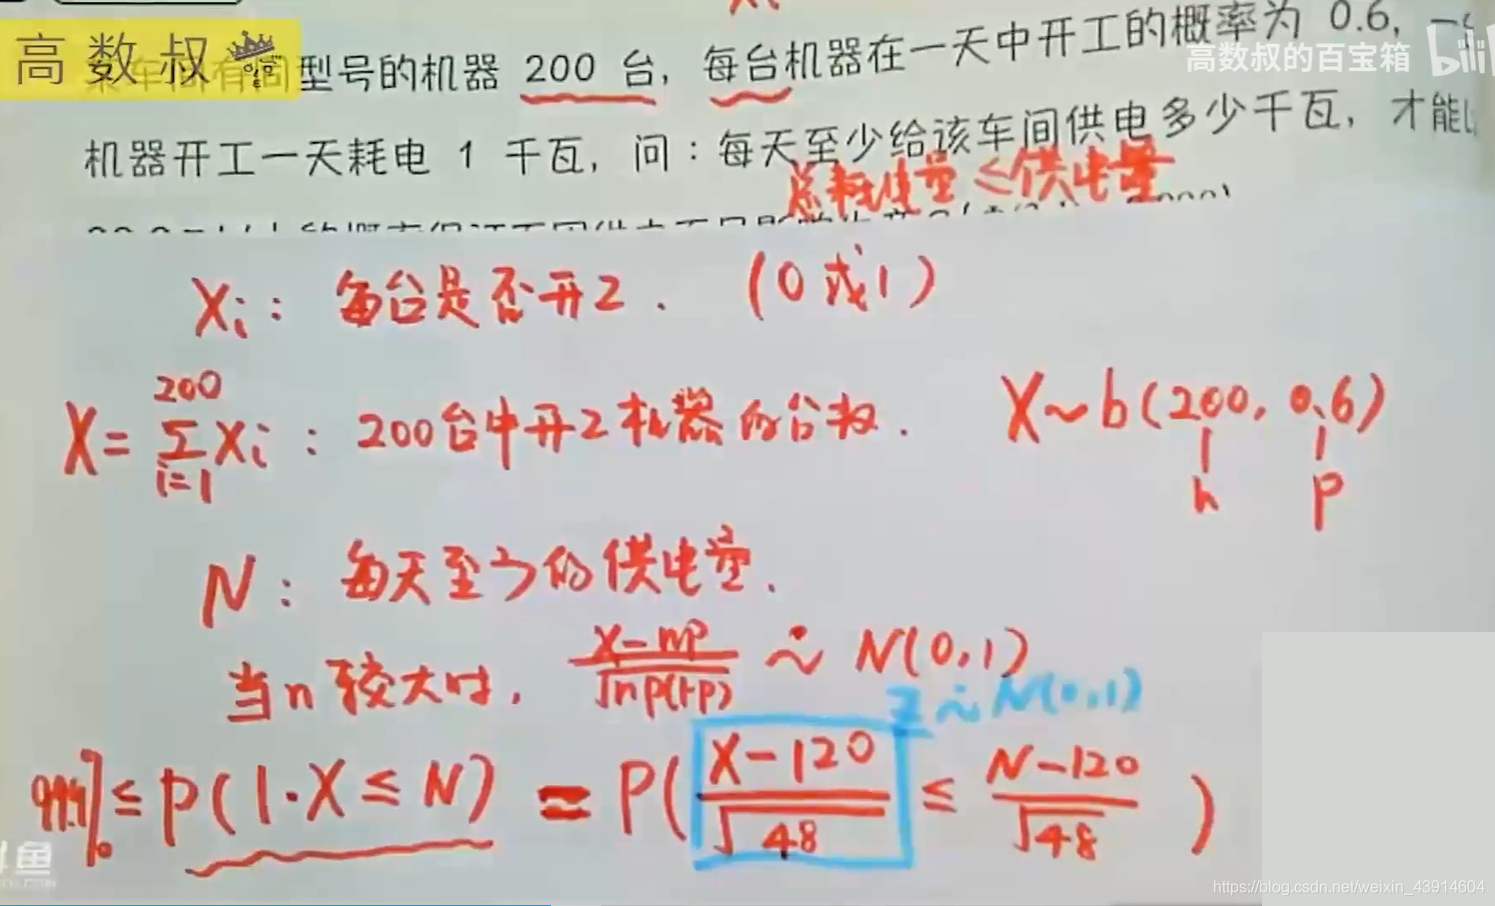 高数叔
型号的机器 200 台，每台机器在一天中开工的概率为 0.6，一
高数叔的百宝箱 bilibili
机器开工一天耗电 1 千瓦，问：每天至少给该车间供电多少千瓦，才能以
总耗电量≤供电量
Xi：每台是否开工. (0或1)
X=∑_{i=1}^{200}Xi：200台中开工机器的台数. X~b(200, 0.6)
n p
N：每天至少的供电量.
当n较大时, (X-np)/√(np(1-p)) ~ N(0,1)
Z~N(0,1)
99.9%≤P(1·X≤N) = P((X-120)/√48 ≤ (N-120)/√48)
https://blog.csdn.net/weixin_43914604